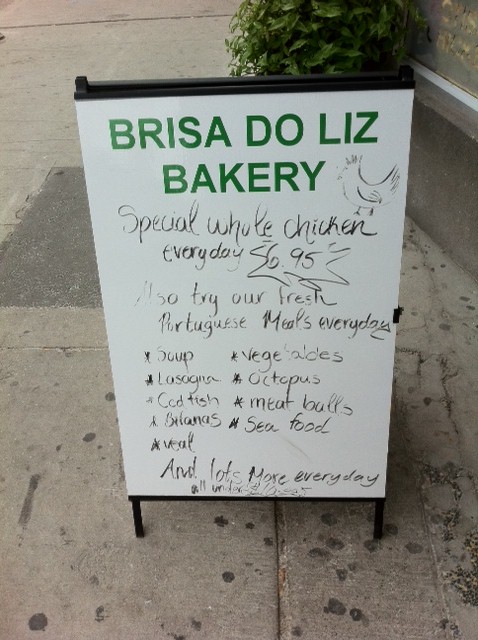 BRISA DO LIZ
BAKERY
Special whole chicken
everyday $6.95
Also try our fresh
Portuguese Meals everyday
* Soup * vegetables
* Lasagna * Octopus
* Cod fish * meat balls
* Bifanas * Sea food
* veal
And lots More everyday
all under